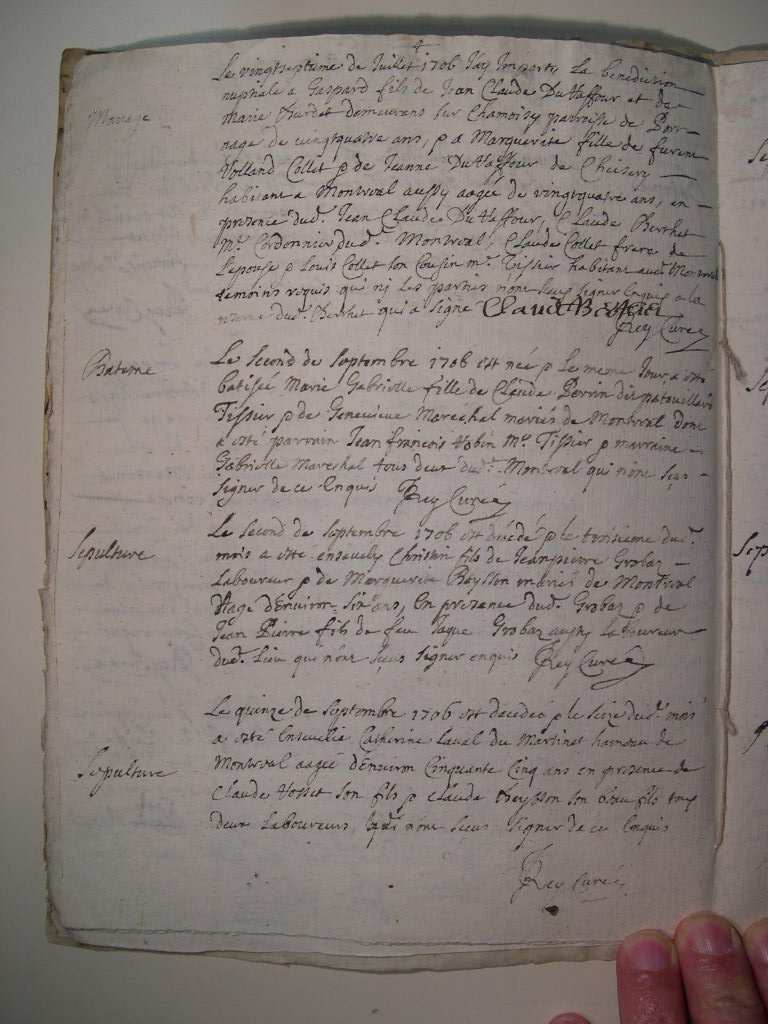 4
Mariage
Le vingtseptieme de Juillet 1706 J'ay Imparty La benediction
nuptiale a Gaspard fils de Jean Claude DuHaffour et de
marie Burdet demeurans sur Chamoisy parroisse de Dor-
nage de vingtquatre ans, & a Marguerite fille de
Rolland Collet & de Jeanne DuHaffour de Cheisery
habitant a Montreal aussy aagée de vingtquatre ans, en
presence dud. Jean Claude DuHaffour, Claude Berthet
Mre. Cordonnier dud. Montreal, Claude Collet frere de
Lepouse & Louis Collet son Cousin mre. Tissier habitant aud. Montreal
temoins requis qui ni les parties n'ont sçeus signer Enquis a la
reserve dud. Berthet qui a signé Claude Berthet
Frey Curé
Bateme
Le second de septembre 1706 est née & Le meme Jour a esté
batisée Marie Gabrielle fille de Claude Perrin dit patouillard
Tissier & de Genevieve Mareschal mariés de Montreal dont
a esté parrain Jean francois Mre. Tissier & marraine
Gabrielle Mareshal tous deux dud. Montreal qui n'ont sçeus
signer de ce Enquis Frey Curé
Sepulture
Le second de septembre 1706 est décédé & le troisieme dud.
mois a esté ensevely Christin fils de Jeanpierre Grobaz
Laboureur & de Marguerite Beysson mariés de Montreal
Aagé d'Environ six ans, En presence dud. Grobaz & de
Jean Pierre fils de feu Jaque Grobaz aussy laboureur
dud. Lieu qui n'ont sçeus signer enquis Frey Curé
Sepulture
Le quinze de septembre 1706 est decedée & le seize dud. mois
a esté Ensevelie Catherine Laval du Martinet hameau de
Montreal aagée d'Environ Cinquante Cinq ans en presence de
Claude Hosset son fils & Claude Beysson son beau fils tous
deux Laboureurs qui n'ont sçeus signer de ce Enquis
Frey Curé